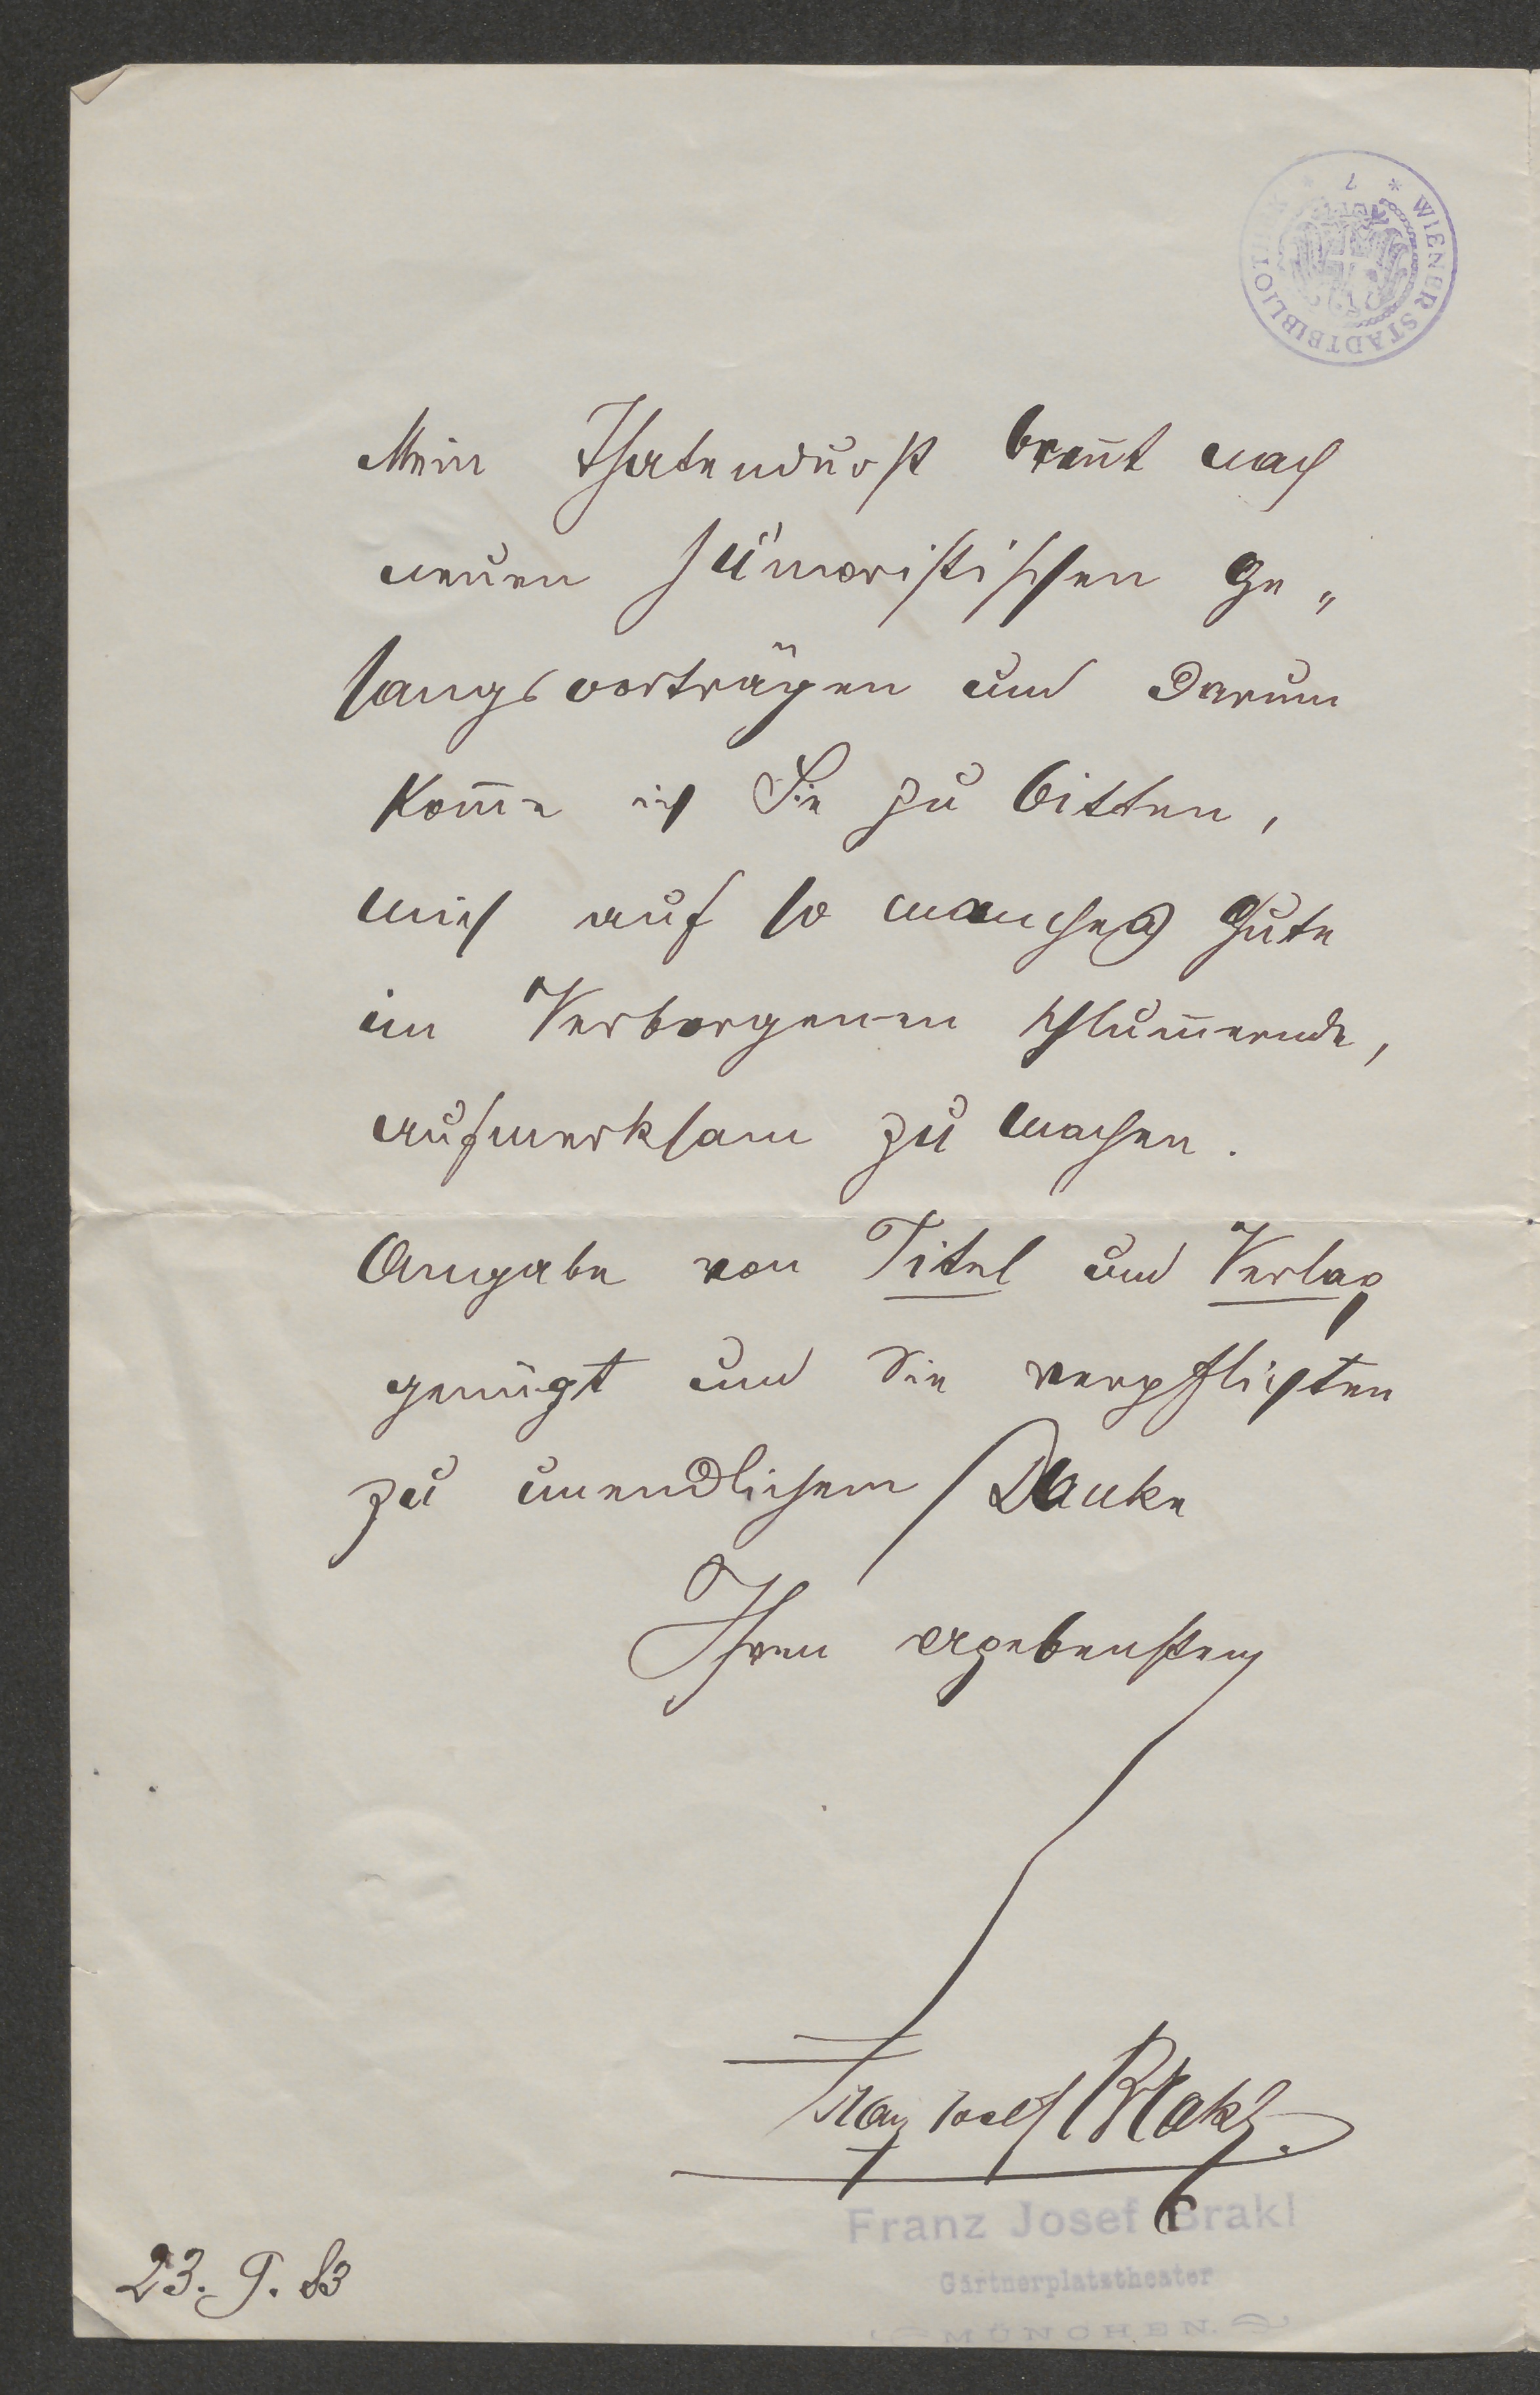 * WIENER STADTBIBLIOTHEK * 7
Mein Thatendurst brennt nach
neuen humoristischen Ge„
sangsvorträgen und darum
kom̅e ich Sie zu bitten,
mich auf so manches Gute
im Verborgenen schlum̅ernde,
aufmerksam zu machen.
Angabe von Titel und Verlag
genügt und Sie verpflichten
zu unendlichem Danke
Ihren ergebensten
Franz Josef Brakl.
Franz Josef Brakl
Gärtnerplatztheater
MÜNCHEN.
23. 9. 83